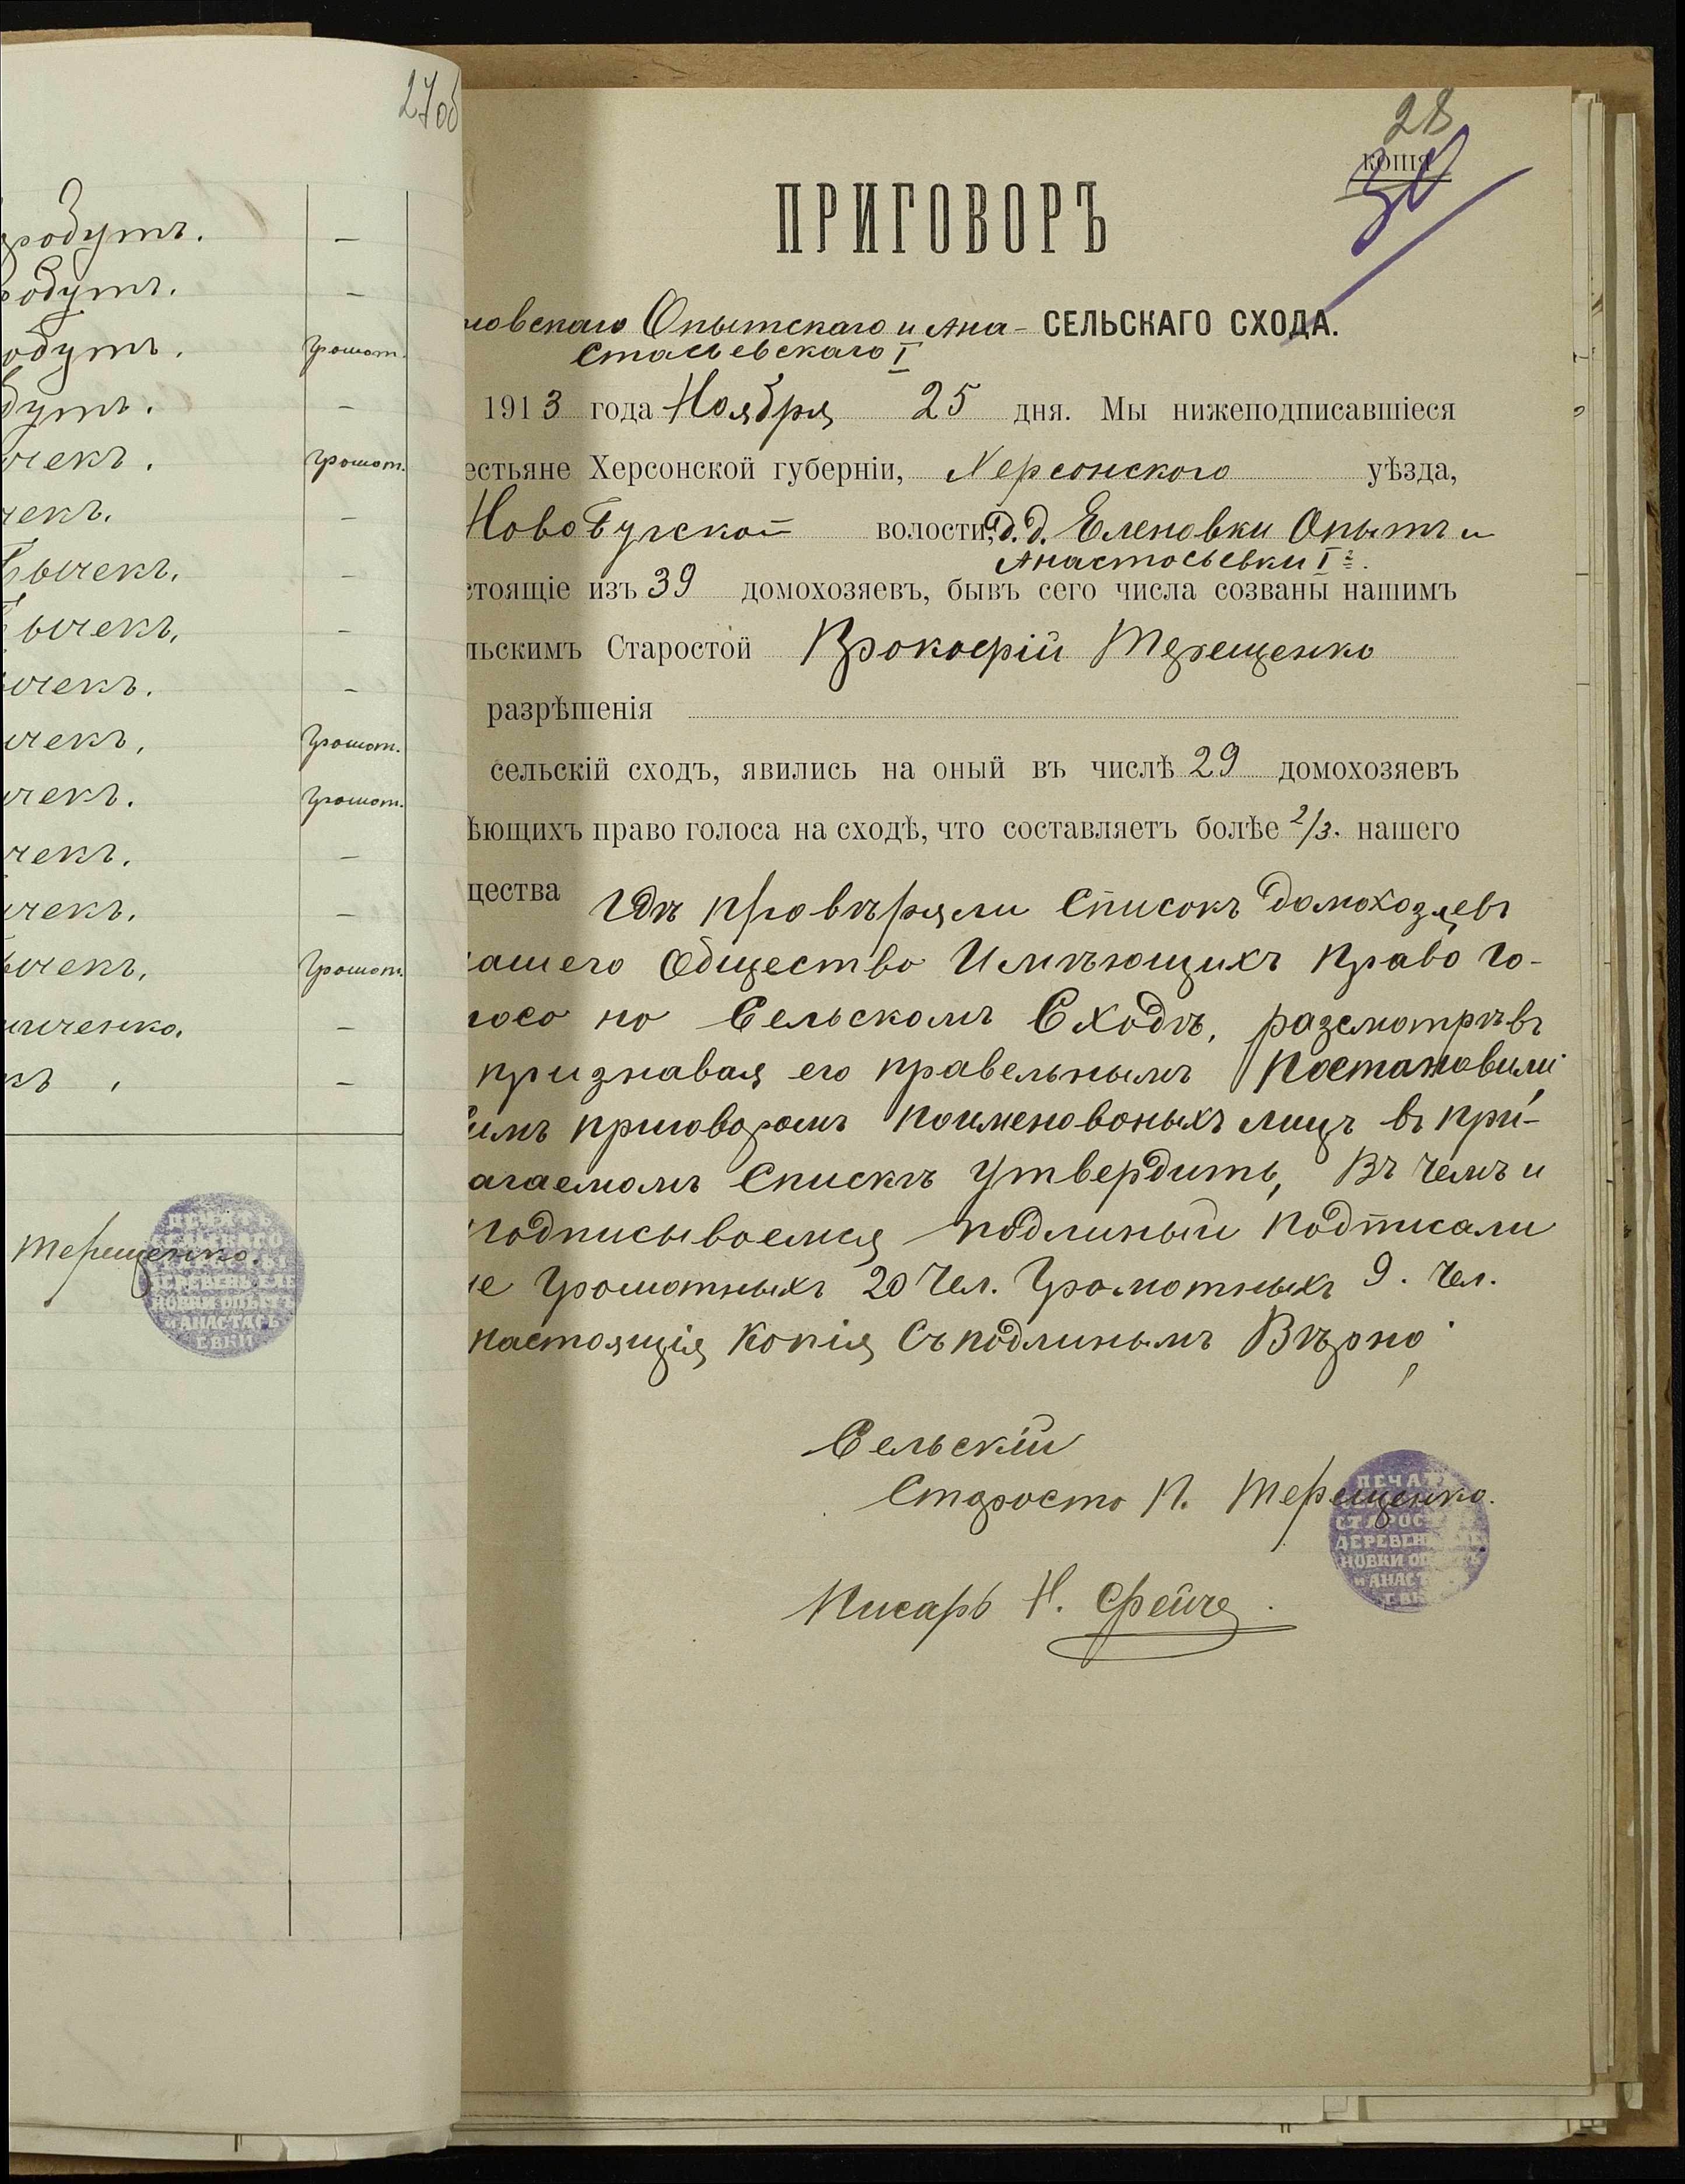 27об
родутъ. –
одутъ. –
одутъ. Громот.
дутъ. –
чекъ. Громот.
чекъ. –
Бычекъ. –
Бычекъ, –
ычекъ. –
ычекъ, Громот.
чекъ. Громот.
чекъ. –
ычекъ, –
ычекъ, Громот.
иченко. –
къ , –
Терещенко.
ПЕЧАТЬ
СЕЛЬСКАГО
ДЕРЕВЕНЬ ЕЛЕ
НОВКИ ОПЫТЪ
и АНАСТАСЬ
ЕВКИ
28
копія
30
ПРИГОВОРЪ
новскаго Опытскаго и Ана- СЕЛЬСКАГО СХОДА.
стасьевскаго I
1913 года Ноября 25 дня. Мы нижеподписавшіеся
естьяне Херсонской губерніи, Херсонского уѣзда,
НовоБугской волости, д.д. Еленовки Опытъ и
Анастосьевки I
стоящіе изъ 39 домохозяевъ, бывъ сего числа созваны нашимъ
льскимъ Старостой Прокофій Терещенко
разрѣшенія
сельскій сходъ, явились на оный въ числѣ 29 домохозяевъ
ѣющихъ право голоса на сходѣ, что составляетъ болѣе 2/3. нашего
щества Гдѣ провѣряли Списокъ домохозяевъ
ашего Общество Имѣющихъ право го-
лосо но Сельскомъ Сходѣ, разсмотрѣвъ
признавая его правельнымъ Постановили
симъ приговоромъ поименовоныхъ лицъ въ при-
агаемомъ Спискѣ утвердить, Въ чемъ и
подписываемся подлиный подписали
не Громотныхъ 20 чел. Громотныхъ 9. чел.
настоящія Копія съ подлинымъ Вѣрно
Сельскій
Старосто П. Терещенко.
ПЕЧАТ
СТАРОС
ДЕРЕВЕН
НОВКИ ОП
и АНАСТ
ЕВК
Писарь Н.